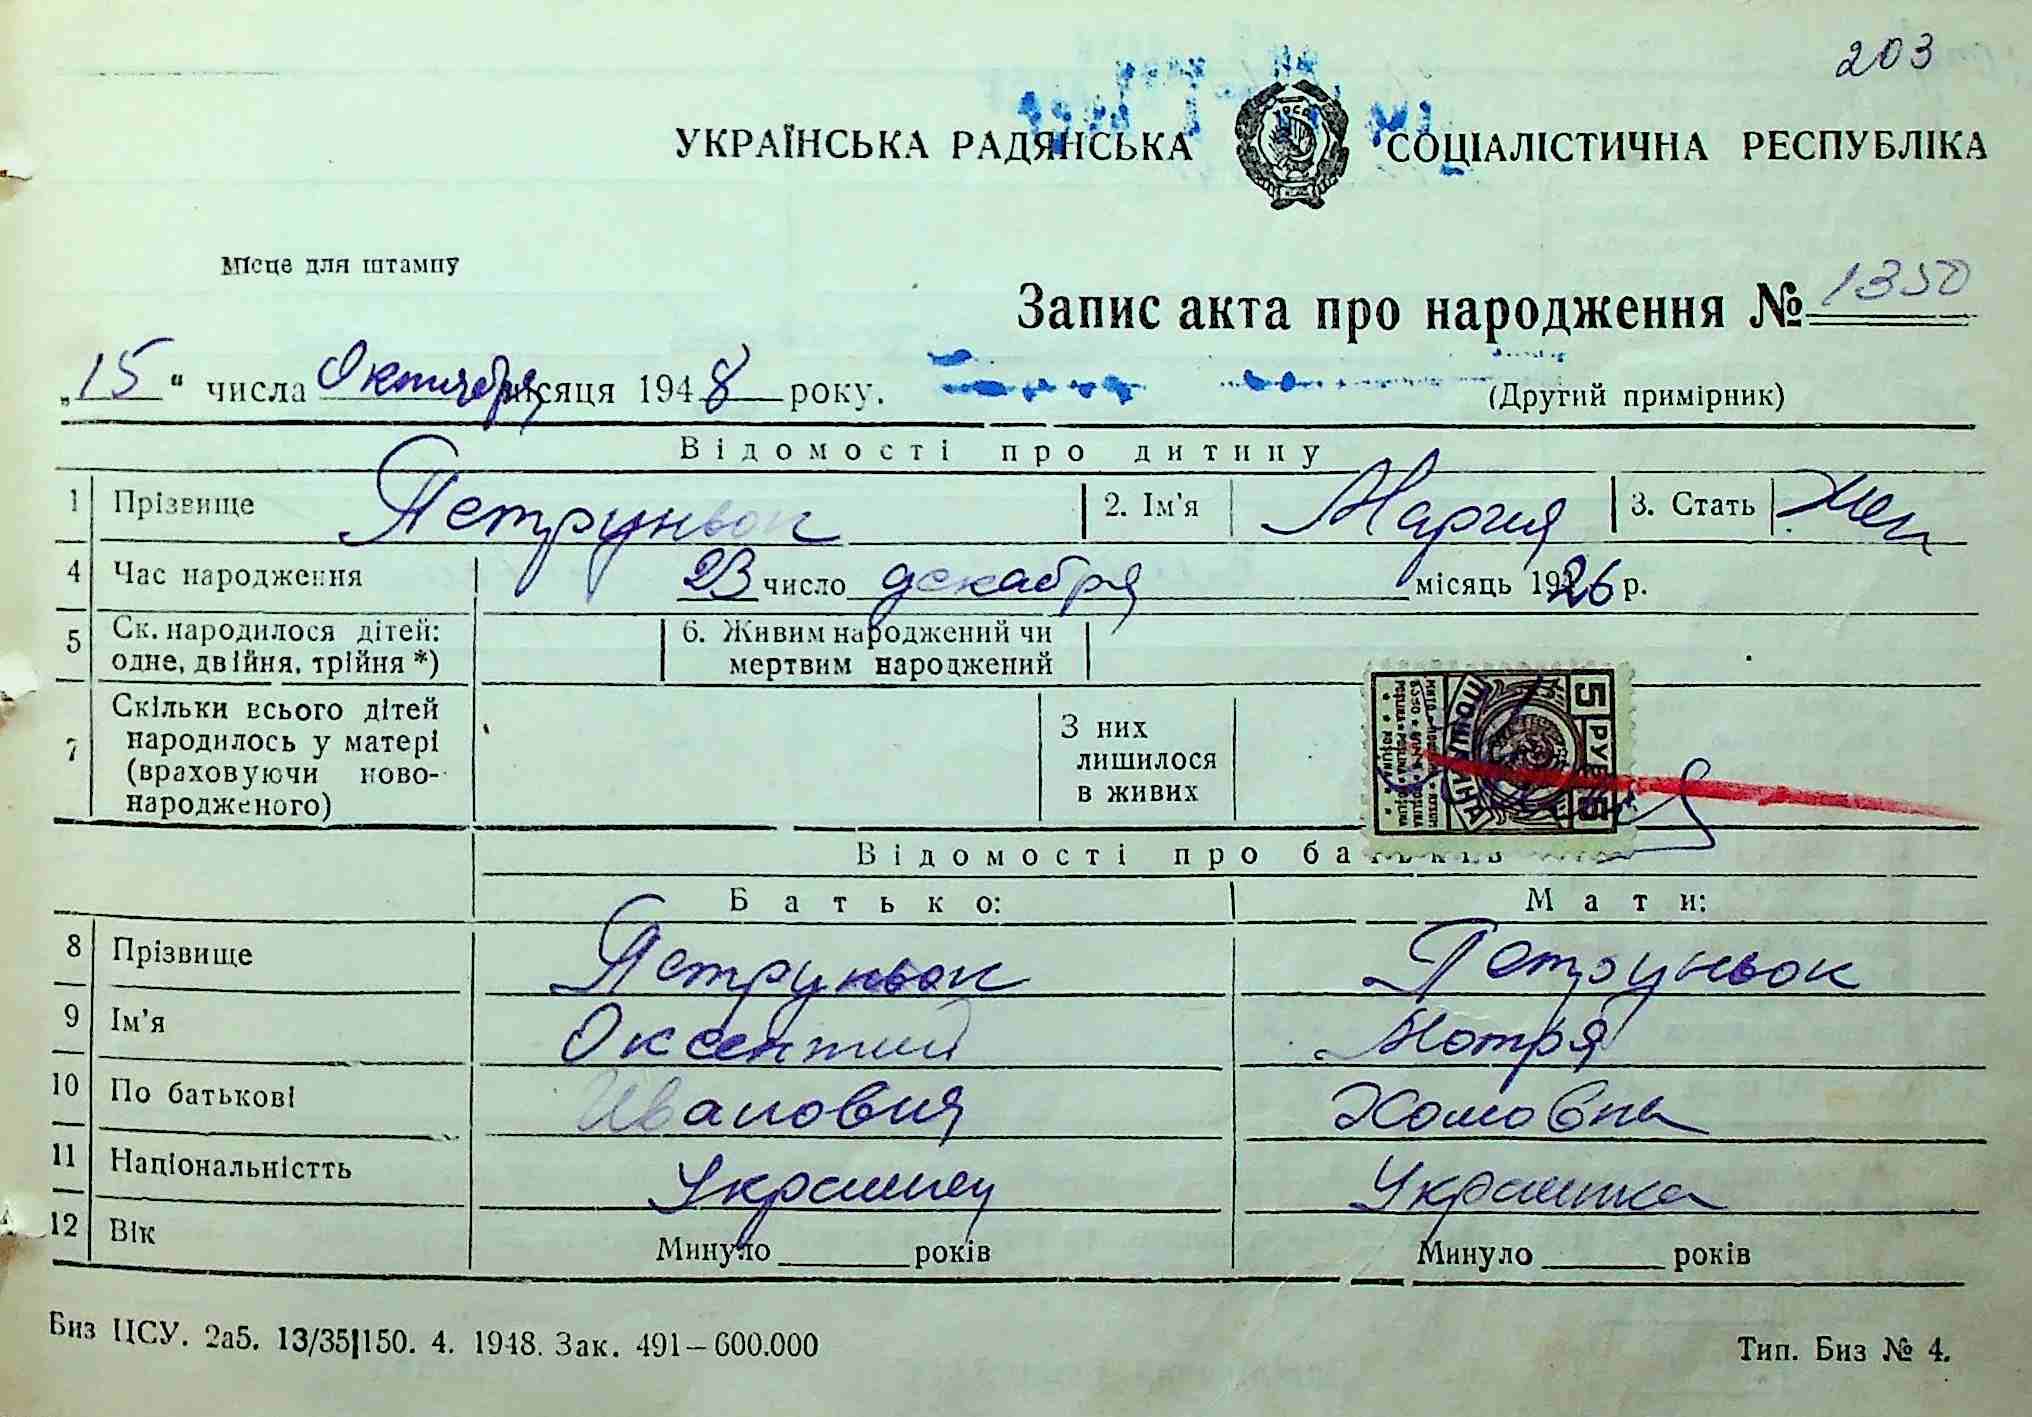 203
УКРАЇНСЬКА РАДЯНСЬКА СОЦІАЛІСТИЧНА РЕСПУБЛІКА
Місце для штампу
Запис акта про народження № 1350
„15“ числа Октября місяця 1948 року.
(Другий примірник)
Відомості про дитину
1 Прізвище Петруньок 2. Ім'я Мария 3. Стать Жен
4 Час народження 23 число декабря місяць 1926 р.
5 Ск. народилося дітей: одне, двійня, трійня *) 6. Живим народжений чи мертвим народжений
7 Скільки всього дітей народилось у матері (враховуючи ново-народженого) З них лишилося в живих
5 РУБ 5
Відомості про батьків
Батько: Мати:
8 Прізвище Петруньок Петруньок
9 Ім'я Оксентий Мотря
10 По батькові Иванович Хомовна
11 Національністть Украинец Украинка
12 Вік Минуло років Минуло років
Биз ЦСУ. 2а5. 13/35|150. 4. 1948. Зак. 491–600.000
Тип. Биз № 4.